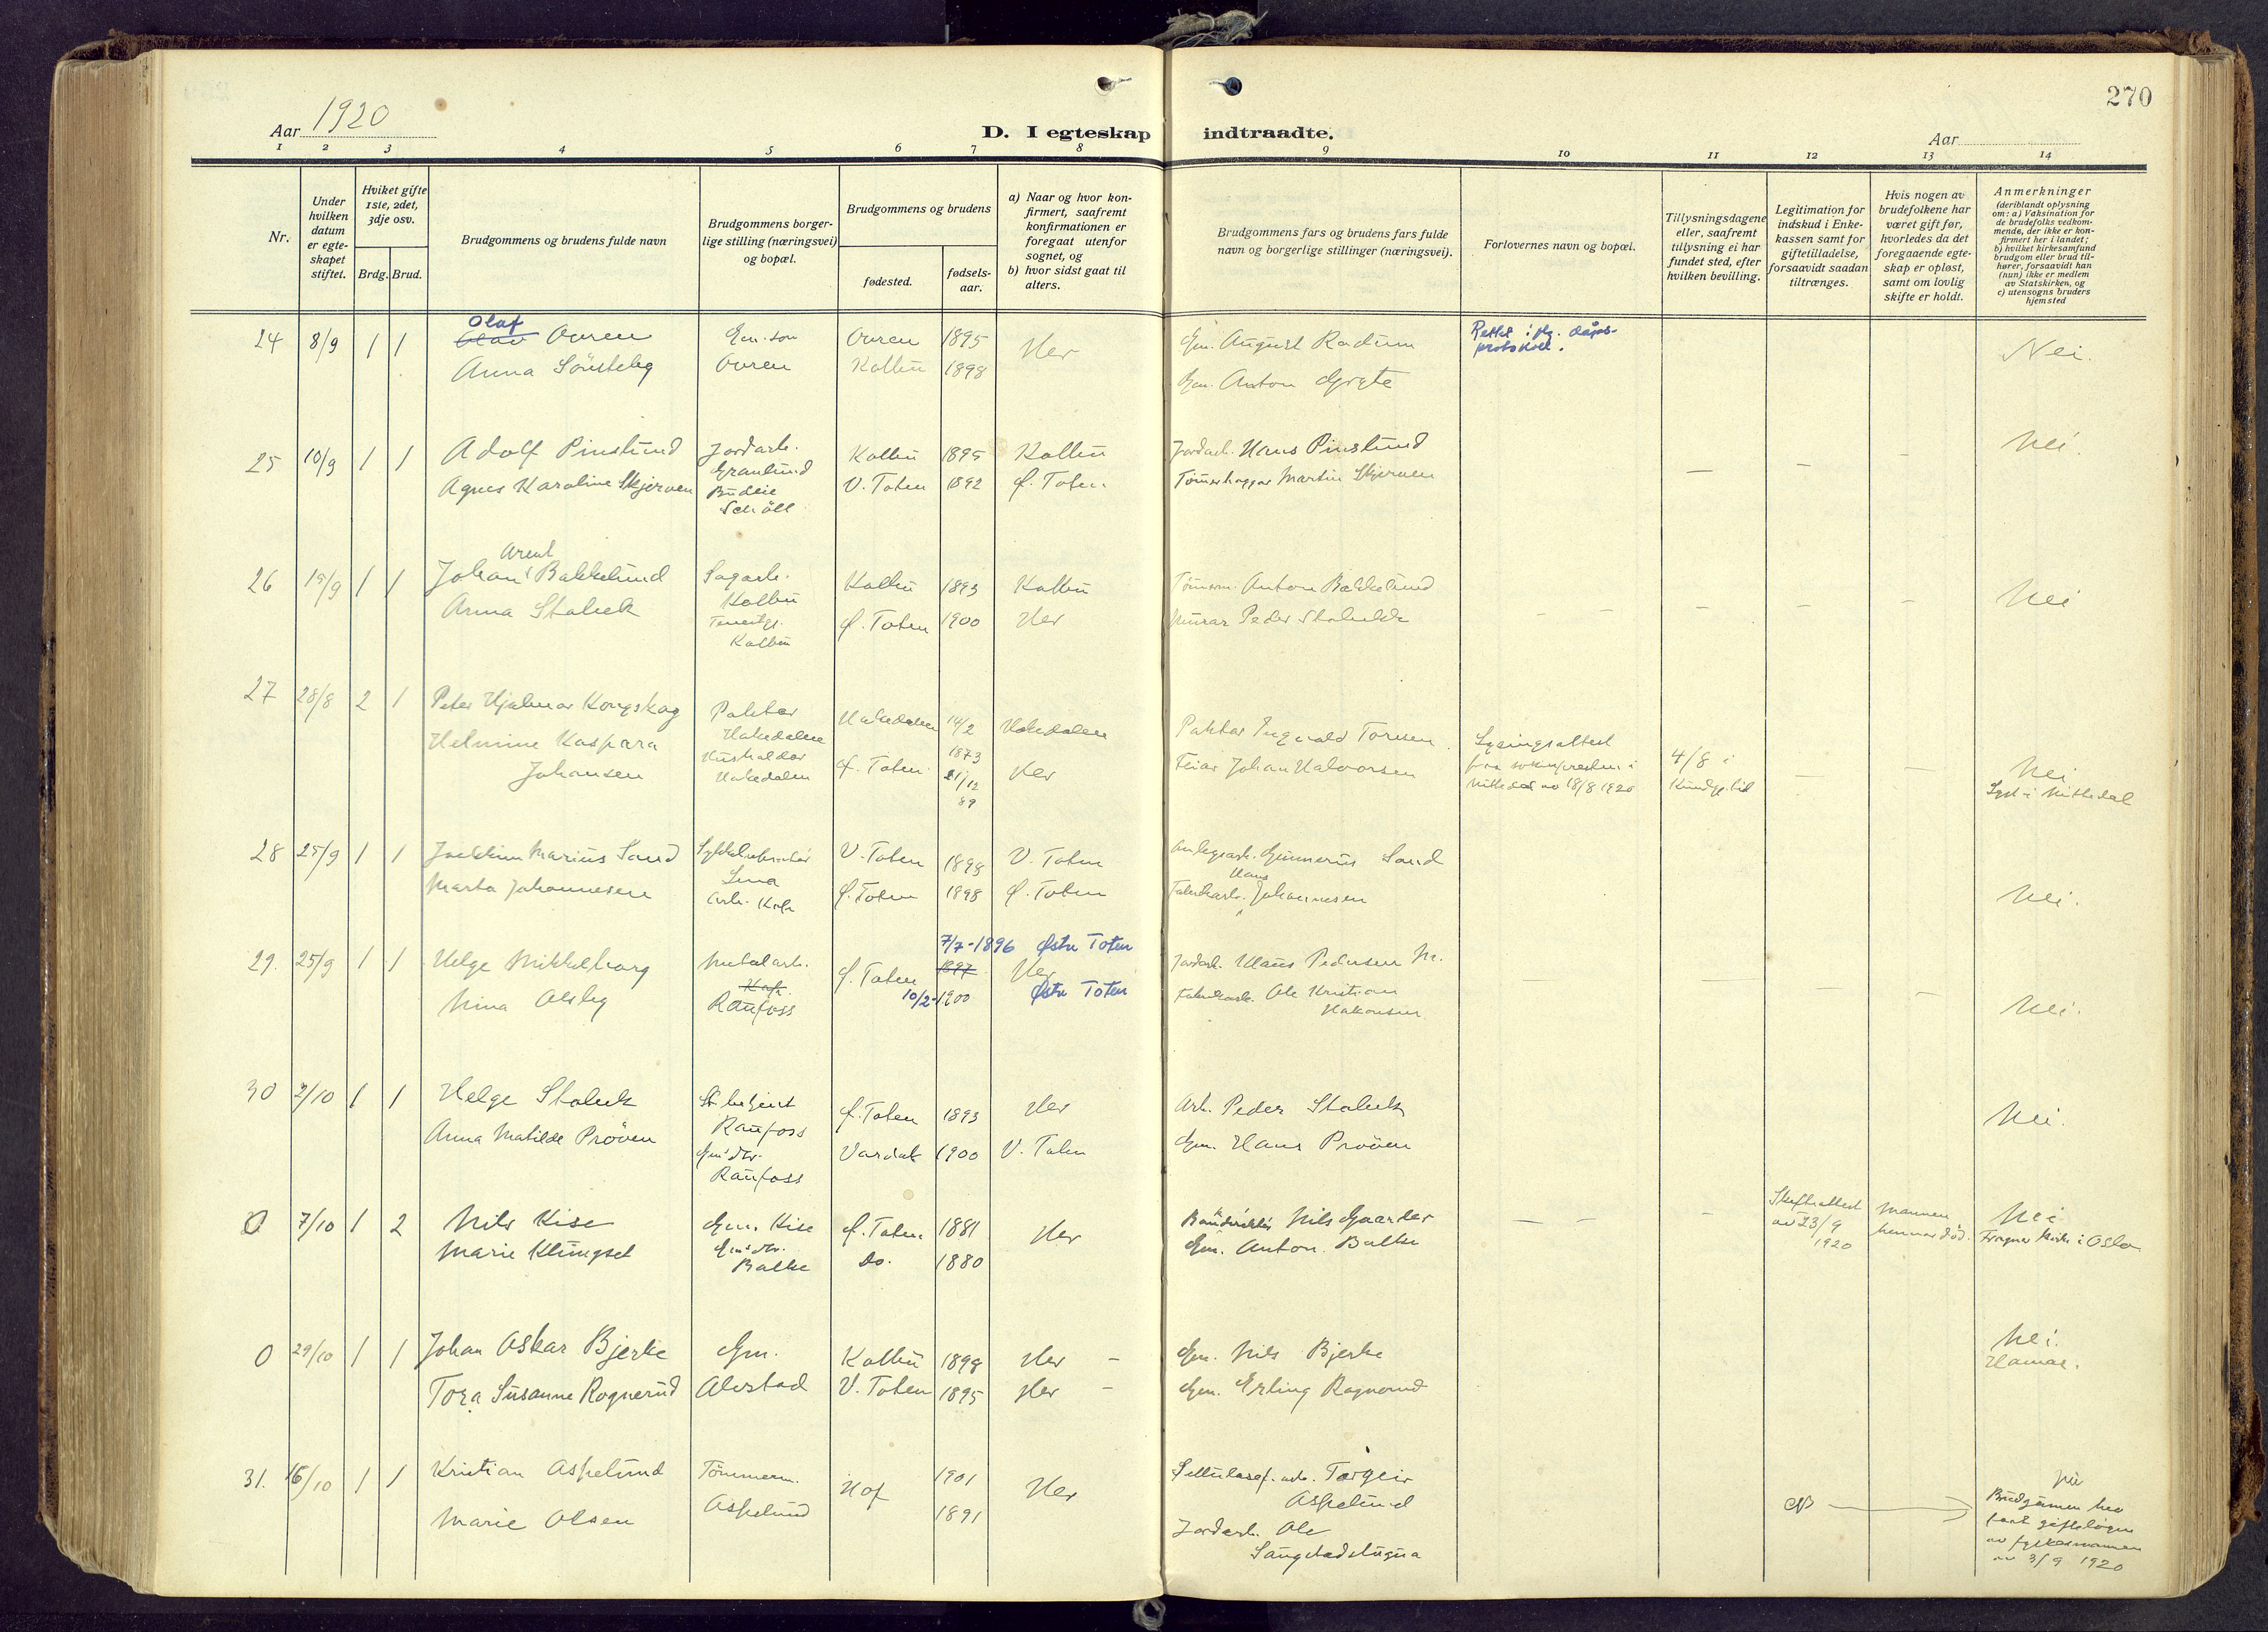 270
Aar 1920
D. I egteskap indtraadte.
Aar
1 2 3 4 5 6 7 8 9 10 11 12 13 14
Nr.
Under
hvilken
datum
er egte-
skapet
stiftet.
Hviket gifte
1ste, 2det,
3dje osv.
Brdg. Brud.
Brudgommens og brudens fulde navn
Brudgommens borger-
lige stilling (næringsvei)
og bopæl.
Brudgommens og brudens
fødested.
fødsels-
aar.
a) Naar og hvor kon-
firmert, saafremt
konfirmationen er
foregaat utenfor
sognet, og
b) hvor sidst gaat til
alters.
Brudgommens fars og brudens fars fulde
navn og borgerlige stillinger (næringsvei).
Forlovernes navn og bopæl.
Tillysningsdagene
eller, saafremt
tillysning ei har
fundet sted, efter
hvilken bevilling.
Legitimation for
indskud i Enke-
kassen samt for
giftetilladelse,
forsaavidt saadan
tiltrænges.
Hvis nogen av
brudefolkene har
været gift før,
hvorledes da det
foregaaende egte-
skap er opløst,
samt om lovlig
skifte er holdt.
Anmerkninger
(deriblandt oplysning
om: a) Vaksination for
de brudefolks vedkom-
mende, der ikke er kon-
firmert her i landet;
b) hvilket kirkesamfund
brudgom eller brud til-
hører, forsaavidt han
(hun) ikke er medlem
av Statskirken, og
c) utensogns bruders
hjemsted
Olaf
24 8/9 1 1 Olav Ovren Gm. søn Ovren 1895 Her Gm. August Radum Rettet i flg. dåps-
protokoll. Nei.
Anna Sönsteby Ovren Kolbu 1898 Gm. Anton Grøte
25 10/9 1 1 Adolf Pinslund Jordarb. Kolbu 1895 Kolbu Jordarb. Hans Pinslund Nei.
Granlund
Agnes Karoline Skjerven Budeie V. Toten 1892 Ø. Toten Tömmerhugger Martin Skjerven — — -
Arent
26 19/9 1 1 Johan Bakkelund Sagarb. Kolbu 1893 Kolbu Tömmerm. Anton Bakkelund Nei
Kolbu
Anna Stabek Ø. Toten 1900 Her Murar Peder Stabekk — — — — —
Kolbu
27 28/8 2 1 Peter Hjalmar Kongskog Paktar Hakedalen 14/2 1873 Hakedalen Paktar Ingvald Torsen Lysingsattest
fra soknepresten i
Nittedal av 18/8 1920 4/8 i
Kundg. tid — —
Hakedalen
Helmine Kaspara
Johansen Husholder
Hakedalen Ø. Toten 21/12 89 Her Feiar Johan Halvorsen Nei
Lyst i Nittedal
28 25/9 1 1 Joakkim Marius Sand V. Toten 1898 V. Toten Anlegsarb. Gunnerus Sand
Lena
Hans
Marta Johannesen Arb. Ø. Toten 1898 Ø. Toten Fabrikarb. Johannesen Nei.
7/7-1896 Østre Toten
29. 25/9 1 1 Helge Mikkelborg Metalarb. Ø. Toten 1897 Her Jordarb. Klaus Pedersen M.
Nina Alsby Raufoss 10/2-1900 Østre Toten Fabrikarb. Ole Kristian
Hakonsen — — — — Nei.
30 2/10 1 1 Helge Stabek Ø. Toten 1893 Her Arb. Peder Stabek Nei.
Raufoss
Anna Matilde Pröven Gm's dtr. Vardal 1900 V. Toten Gm. Hans Pröven
Raufoss
0 7/10 1 2 Nils Kise Gm. Kise Ø. Toten 1881 Her Nils Gaarder — — — Skifteattest
av 23/9
1920 Mannen
hennar död. Nei
Frogner kirke i Oslo
Marie Klungset Gm's dtr.
Balke Do. 1880 Gm. Anton Balke
0 29/10 1 1 Johan Oskar Bjerke Gm. Kolbu 1898 Her - Gm. Nils Bjerke Nei.
Hamar.
Tora Susanne Rognerud Alvstad V. Toten 1895 Her - Gm. Erling Rognerud
31. 16/10 1 1 Kristian Aspelund Tömmerm. Hof 1901 Her Sellulosef. arb. Torgeir
Aspelund
Marie Olsen Aspelund 1891 Jordarb. Ole
Sangstadstugua
Nei
Brudgumen hev
fått gifteløyve
av fylkesmannen
av 3/9 1920